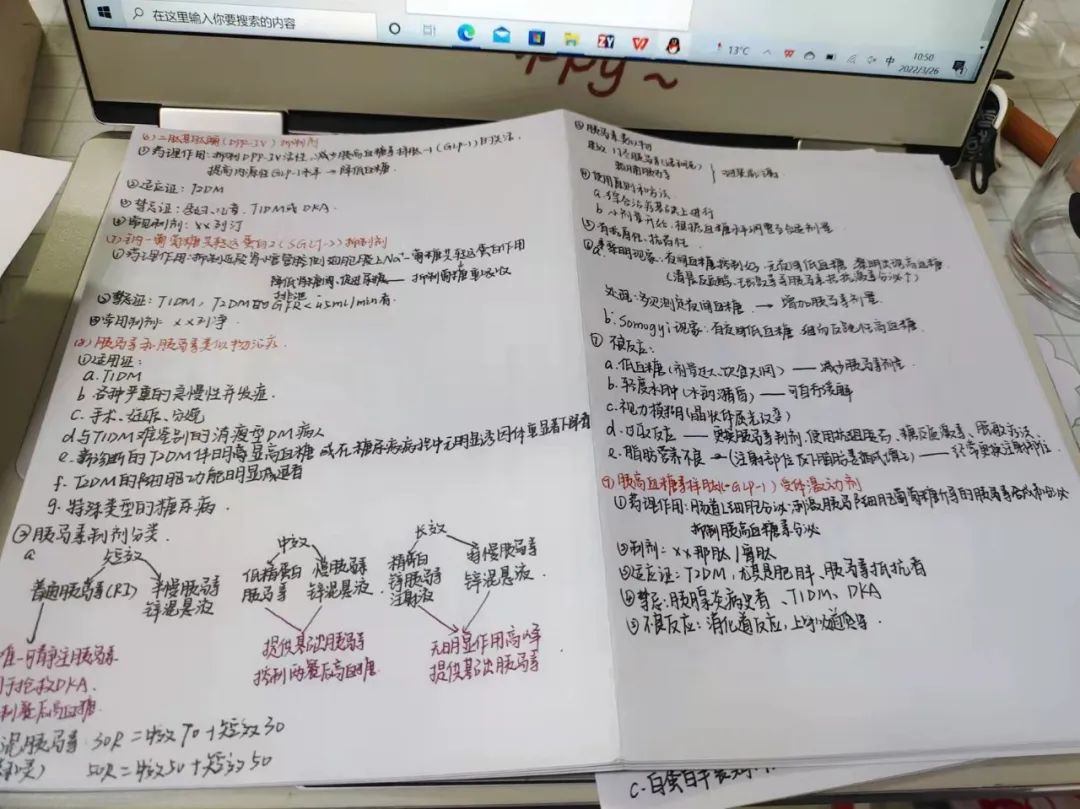 在这里输入你要搜索的内容
13°C
中
10:50
2022/3/26
ppy~
(6)二肽基肽酶(DPP-IV)抑制剂
①药理作用:抑制DPP-IV活性,减少胰高血糖素样肽-1(GLP-1)的失活
提高内源性GLP-1水平→降低血糖.
②适应证:T2DM
③禁忌证:孕妇、儿童、T1DM或DKA.
④常见制剂:××列汀
(7)钠-葡萄糖共转运蛋白2(SGLT-2)抑制剂
①药理作用:抑制近段肾小管管腔侧细胞膜上Na⁺-葡萄糖共转运蛋白作用
降低肾糖阈、促进尿糖排泄 抑制葡萄糖重吸收
③禁忌证:T1DM,T2DM的GFR<45ml/min者.
④常用制剂:××列净.
(8)胰岛素和胰岛素类似物治疗.
①适用证:
a.T1DM
b.各种严重的急慢性并发症.
c.手术、妊娠、分娩
d.与T1DM难鉴别的消瘦型DM病人
e.新诊断的T2DM伴明显高血糖 或在糖尿病病程中无明显诱因体重显著下降者
f.T2DM的β细胞功能明显减退者
g.特殊类型的糖尿病.
②胰岛素制剂分类.
a
短效
普通胰岛素(RI)
半慢胰岛素锌混悬液
唯一可静注胰岛素
用于抢救DKA.
控制餐后高血糖.
中效
低精蛋白胰岛素
慢胰岛素锌混悬液.
提供基础胰岛素
控制两餐后高血糖
长效
精蛋白锌胰岛素注射液
特慢胰岛素锌混悬液.
无明显作用高峰
提供基础胰岛素
混胰岛素 30R=中效70+短效30
50R=中效50+短效50
③胰岛素类似物
④使用原则和方法.
a.综合治疗基础上进行
b.小剂量开始,根据血糖水平调整至合适剂量
⑤有抗原性、抗药性.
⑥a.黎明现象:夜间血糖控制好,无夜间低血糖,黎明出现高血糖
处理:多次测定夜间血糖. → 增加胰岛素剂量.
b.Somogyi现象:有夜间低血糖,继而反跳性高血糖.
⑦不良反应:
a.低血糖(剂量过大、饮食失调)——减少胰岛素剂量
b.轻度水肿(水钠潴留)——可自行缓解
c.视力模糊(晶状体屈光改变)
d.过敏反应——更换胰岛素制剂,使用抗组胺药、糖皮质激素、脱敏疗法.
e.脂肪营养不良→(注射部位皮下脂肪萎缩或增生)——经常更换注射部位.
(9)胰高血糖素样肽(-GLP-1)受体激动剂
①药理作用:肠道L细胞分泌,刺激胰岛β细胞葡萄糖介导的胰岛素合成和分泌
抑制胰高血糖素分泌
②制剂:××那肽/鲁肽
③适应证:T2DM,尤其是肥胖、胰岛素抵抗者
④禁忌:胰腺炎病史者、T1DM、DKA
⑤不良反应:消化道反应,上呼吸道感染.